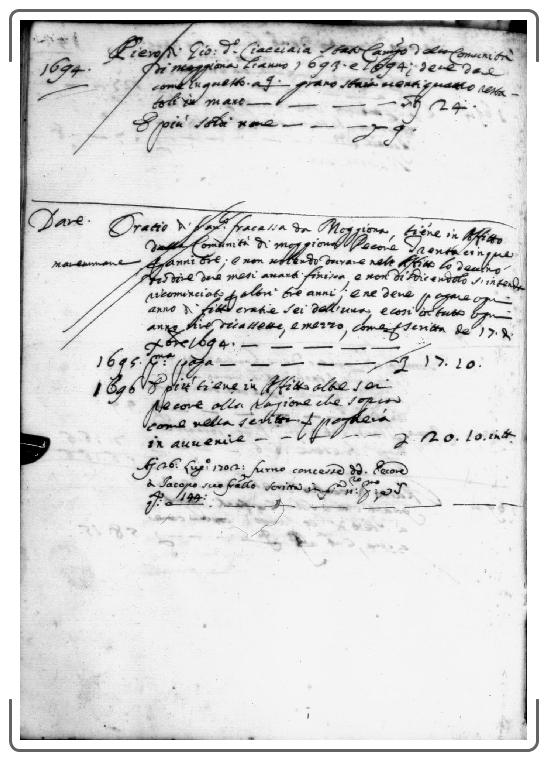 Piero di Gio: d.º Ciacciaia stato Camar.º della Comunità
1694. di moggiona l'anno 1693. e 1694; deve dare
come in questo a 9. grano staia ventiquattro resta-
toli in mano — — — — — 24.
E più soldi nove — — — — 9.
Dare. Oratio di fracassa da Moggiona tiene in Affitto
dalla Comunità di moggiona Pecore Trenta cinque
p anni tre; e non volendo durare nell'Affitto lo devino
disdire due mesi avanti finisca, e non disdicendolo s'intenda
ricominciato p altri tre anni; e ne deve pagare ogni
anno di fitto cratie sei dell'una, e così in tutto ogni
anno lire dicassette, e mezzo, come p scritta de 17. di
8bre 1694. — — — — —
1695. p.ª paga — — — — — 17. 10.
1696 E più tiene in Affitto altre sei
Pecore alla ragione che sopra
come nella scritta, e pagherà
in avvenire — — — — 20. 10.
A 26. Lug.º 1702: furno concesse dd. Pecore
a Jacopo suo fratello scritta in
144: